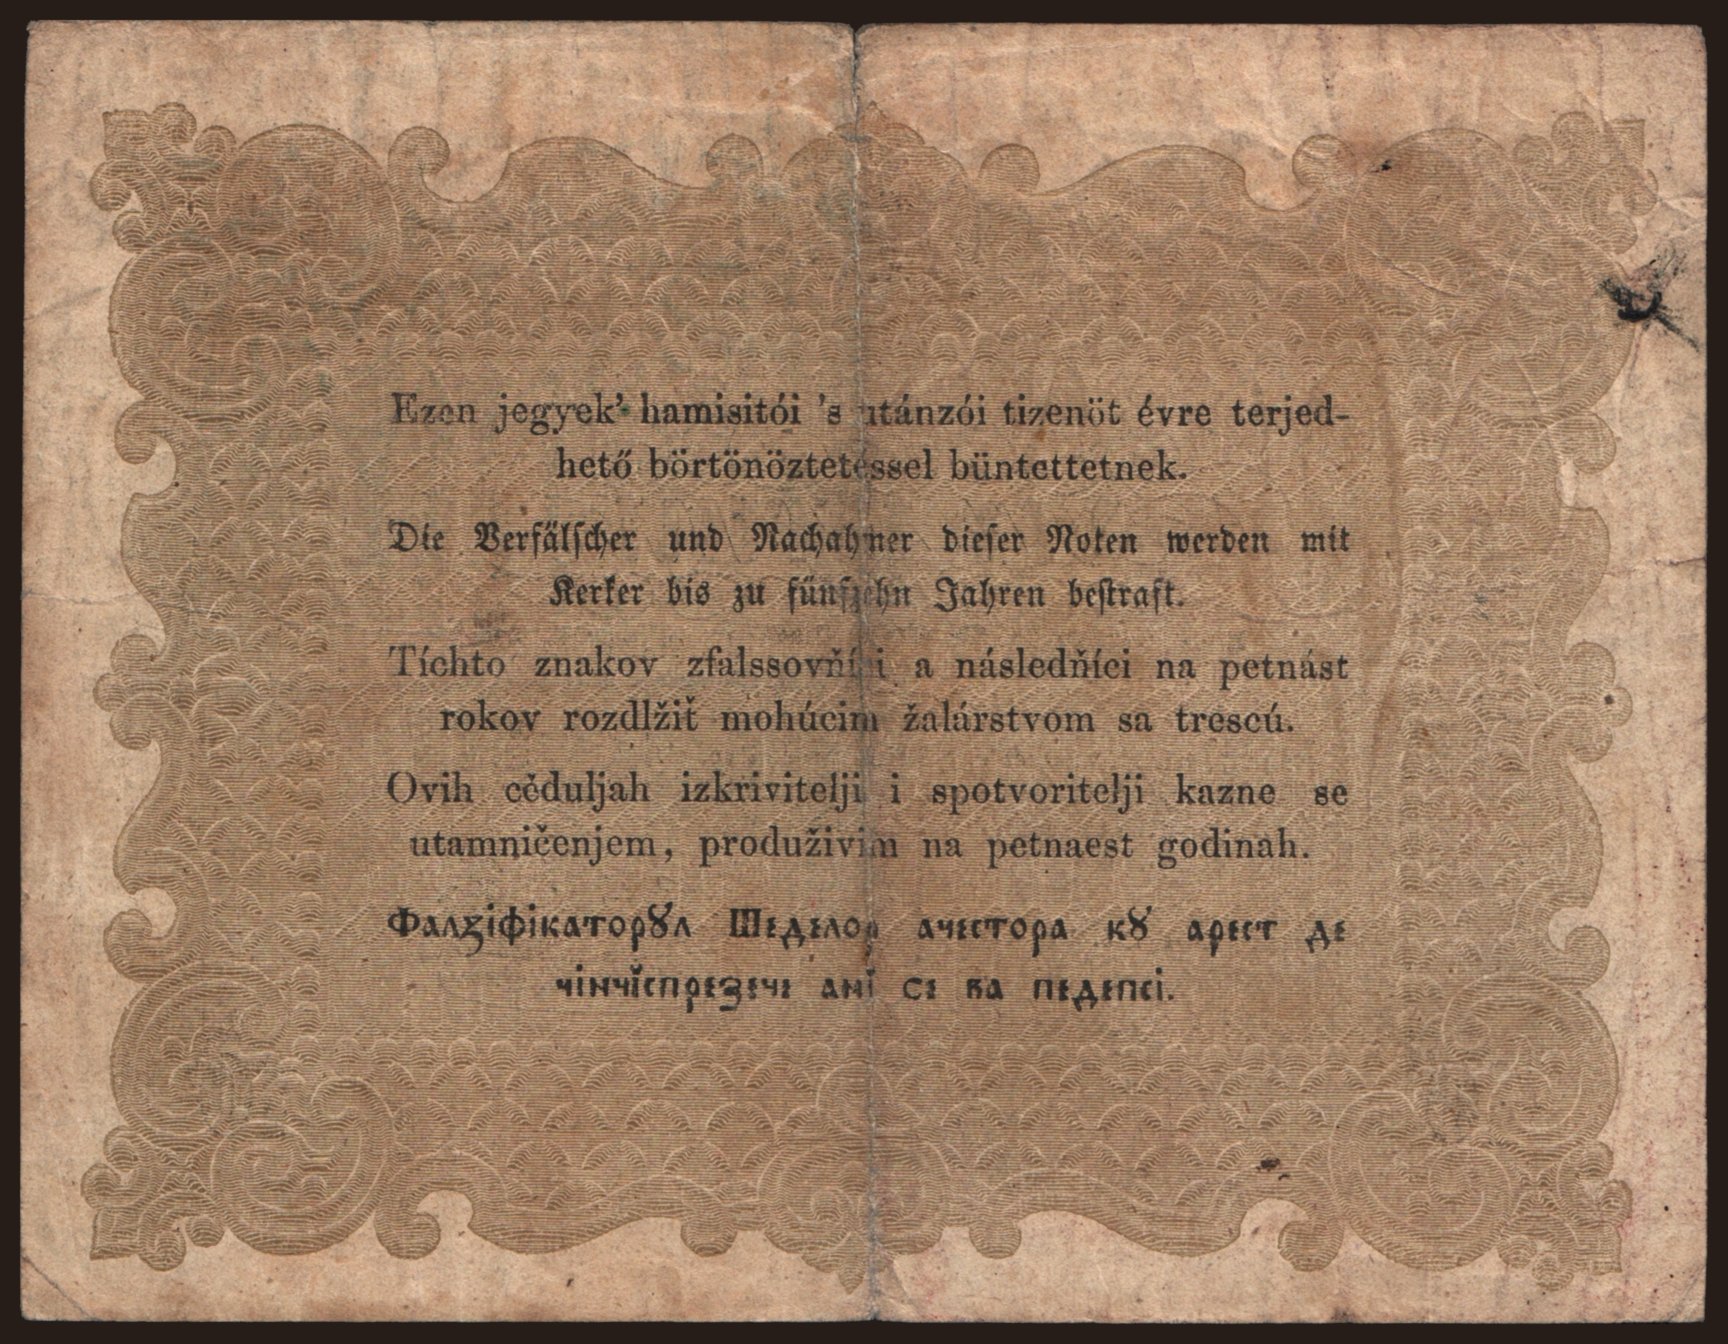 Ezen jegyek' hamisitói 's utánzói tizenöt évre terjed-
hető börtönöztetéssel büntettetnek.
Die Verfälscher und Nachahmer dieser Noten werden mit
Kerker bis zu fünfzehn Jahren bestraft.
Tíchto znakov zfalssovňíci a následňíci na petnást
rokov rozdlžiť mohúcim žalárstvom sa trescú.
Ovih cěduljah izkrivitelji i spotvoritelji kazne se
utamničenjem, produživim na petnaest godinah.
Фалѯіфікаторꙋл Шеделор ачестора кꙋ арест де
чінчĭспрезече анĭ се ва педепсі.